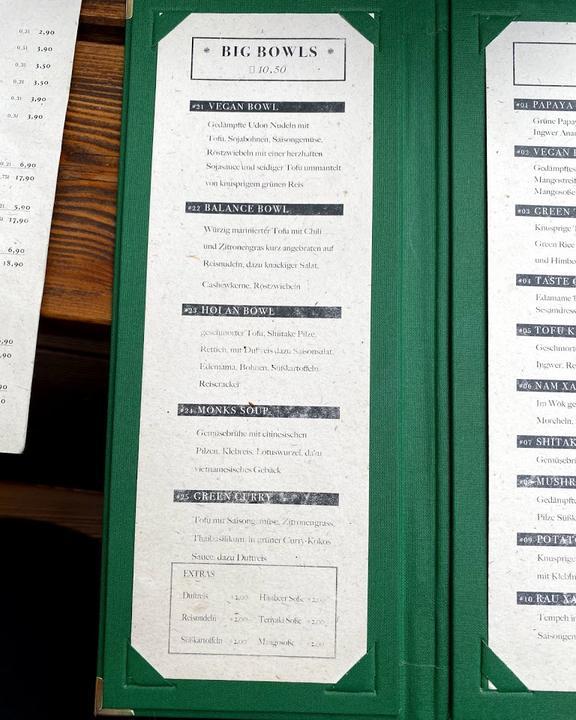 0,2l 2,90
0,5l 3,90
0,2l 3,50
0,2l 3,50
0,2l 3,90
0,2l 3,90
6,90
17,90
5,90
17,90
6,90
18,90
BIG BOWLS
10,50
#21 VEGAN BOWL
Gedämpfte Udon Nudeln mit
Tofu, Sojabohnen, Saisongemüse,
Röstzwiebeln mit einer herzhaften
Sojasauce und seidiger Tofu ummantelt
von knusprigem grünen Reis
#22 BALANCE BOWL
Würzig marinierter Tofu mit Chili
und Zitronengras kurz angebraten auf
Reisnudeln, dazu knackiger Salat,
Cashewkerne, Röstzwiebeln
#23 HOI AN BOWL
geschmorter Tofu, Shiitake Pilze,
Rettich, mit Duftreis dazu Saisonsalat,
Edemama, Bohnen, Süßkartoffeln
Reiscracker
#24 MONKS SOUP
Gemüsebrühe mit chinesischen
Pilzen, Klebreis, Lotuswurzel, dazu
vietnamesisches Gebäck
#25 GREEN CURRY
Tofu mit Saisongemüse, Zitronengrass,
Thaibasilikum, in grüner Curry-Kokos
Sauce, dazu Duftreis
EXTRAS
Duftreis +2,00 Himbeer Soße +2,00
Reisnudeln +2,00 Teriyaki Soße +2,00
Süßkartoffeln +2,00 Mangosoße +2,00
#01 PAPAYA
Grüne Papay
Ingwer Ana
#02 VEGAN
Gedämpftes
Mangostreif
Mangosoße
#03 GREEN
Knusprige
Green Rice
und Himbe
#04 TASTE
Edamame
Sesamdress
#05 TOFU K
Geschmort
Ingwer, Re
#06 NAM XA
Im Wok ge
Morcheln,
#07 SHITAK
Gemüsebrü
#08 MUSHR
Gedämpft
Pilze Süßk
#09 POTATO
Knusprige
mit Klebr
#10 RAU XA
Tempeh i
Saisongem